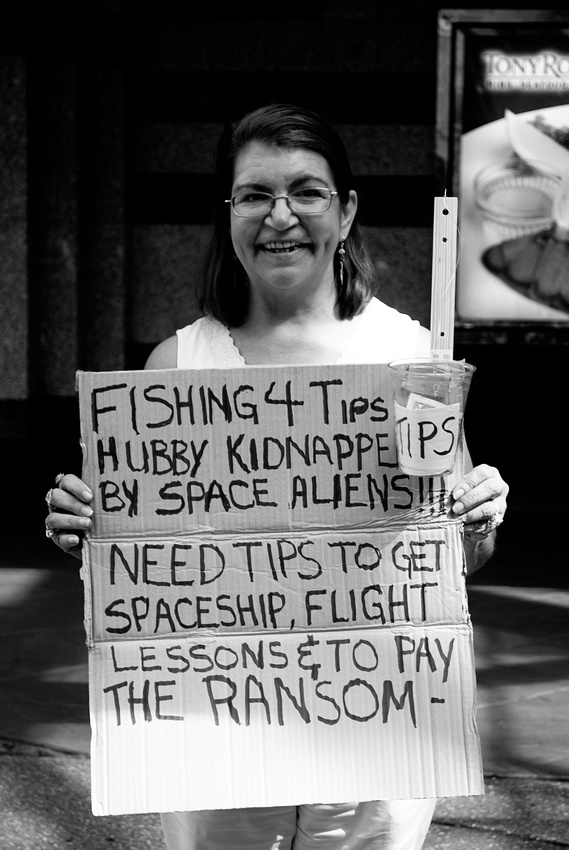 TONY RO
RIBS SEAFOOD
FISHING 4 TIPS
HUBBY KIDNAPPE
BY SPACE ALIENS!!!
TIPS
NEED TIPS TO GET
SPACESHIP, FLIGHT
LESSONS & TO PAY
THE RANSOM -